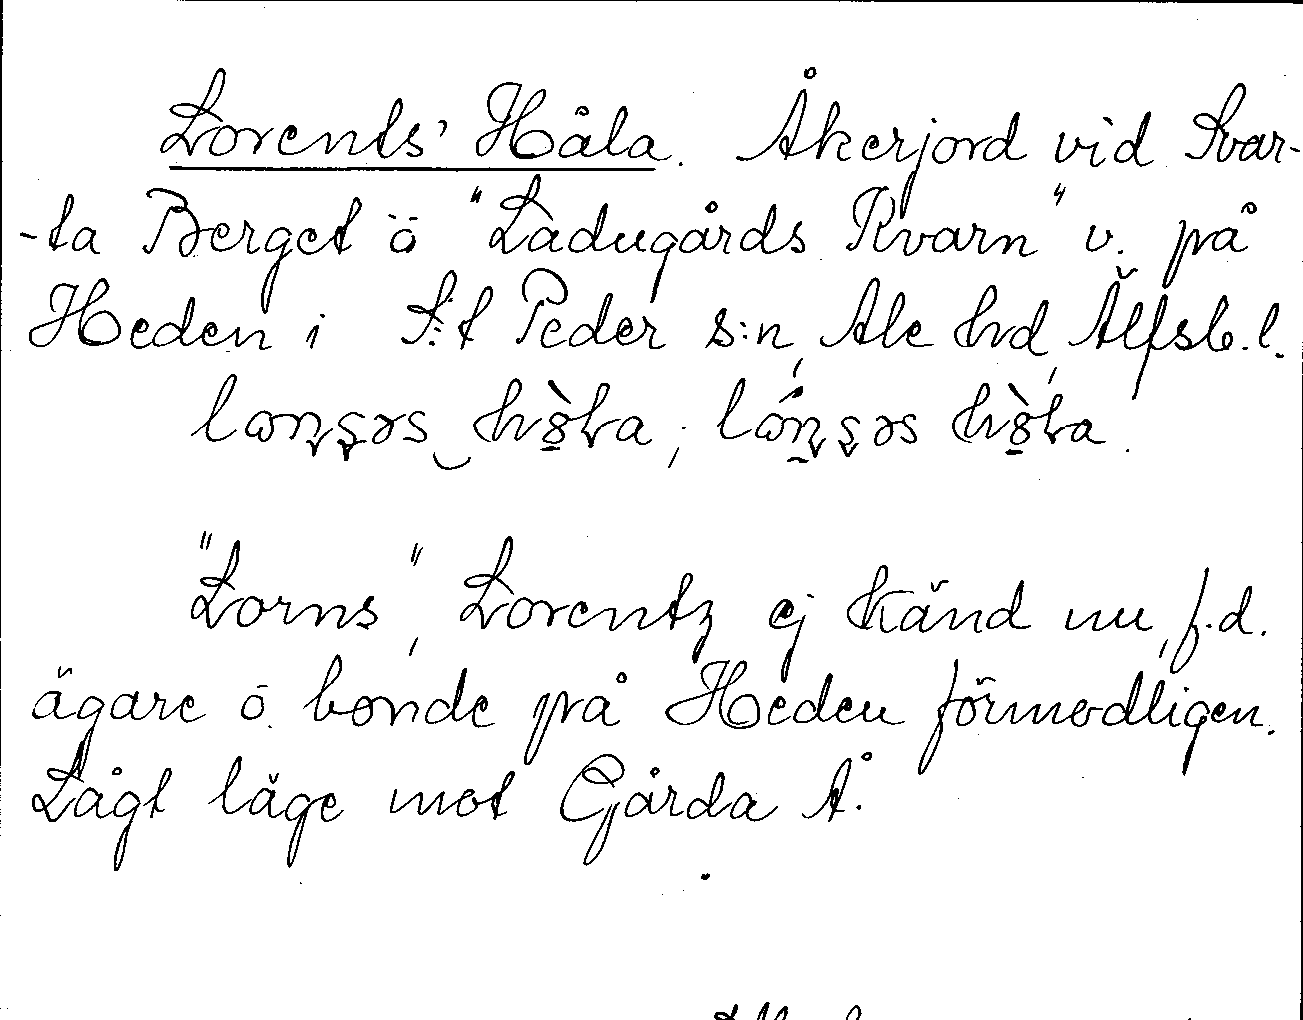 Lorents' Håla. Åkerjord vid Svar-
-ta Berget ö "Ladugårds Kvarn" v. på
Heden i S:t Peder s:n, Ale hd, Älfsb. l.
"Lorns", Lorentz ej känd nu, f.d.
ägare o. bonde på Heden förmodligen.
Lågt läge mot Gårda Å.